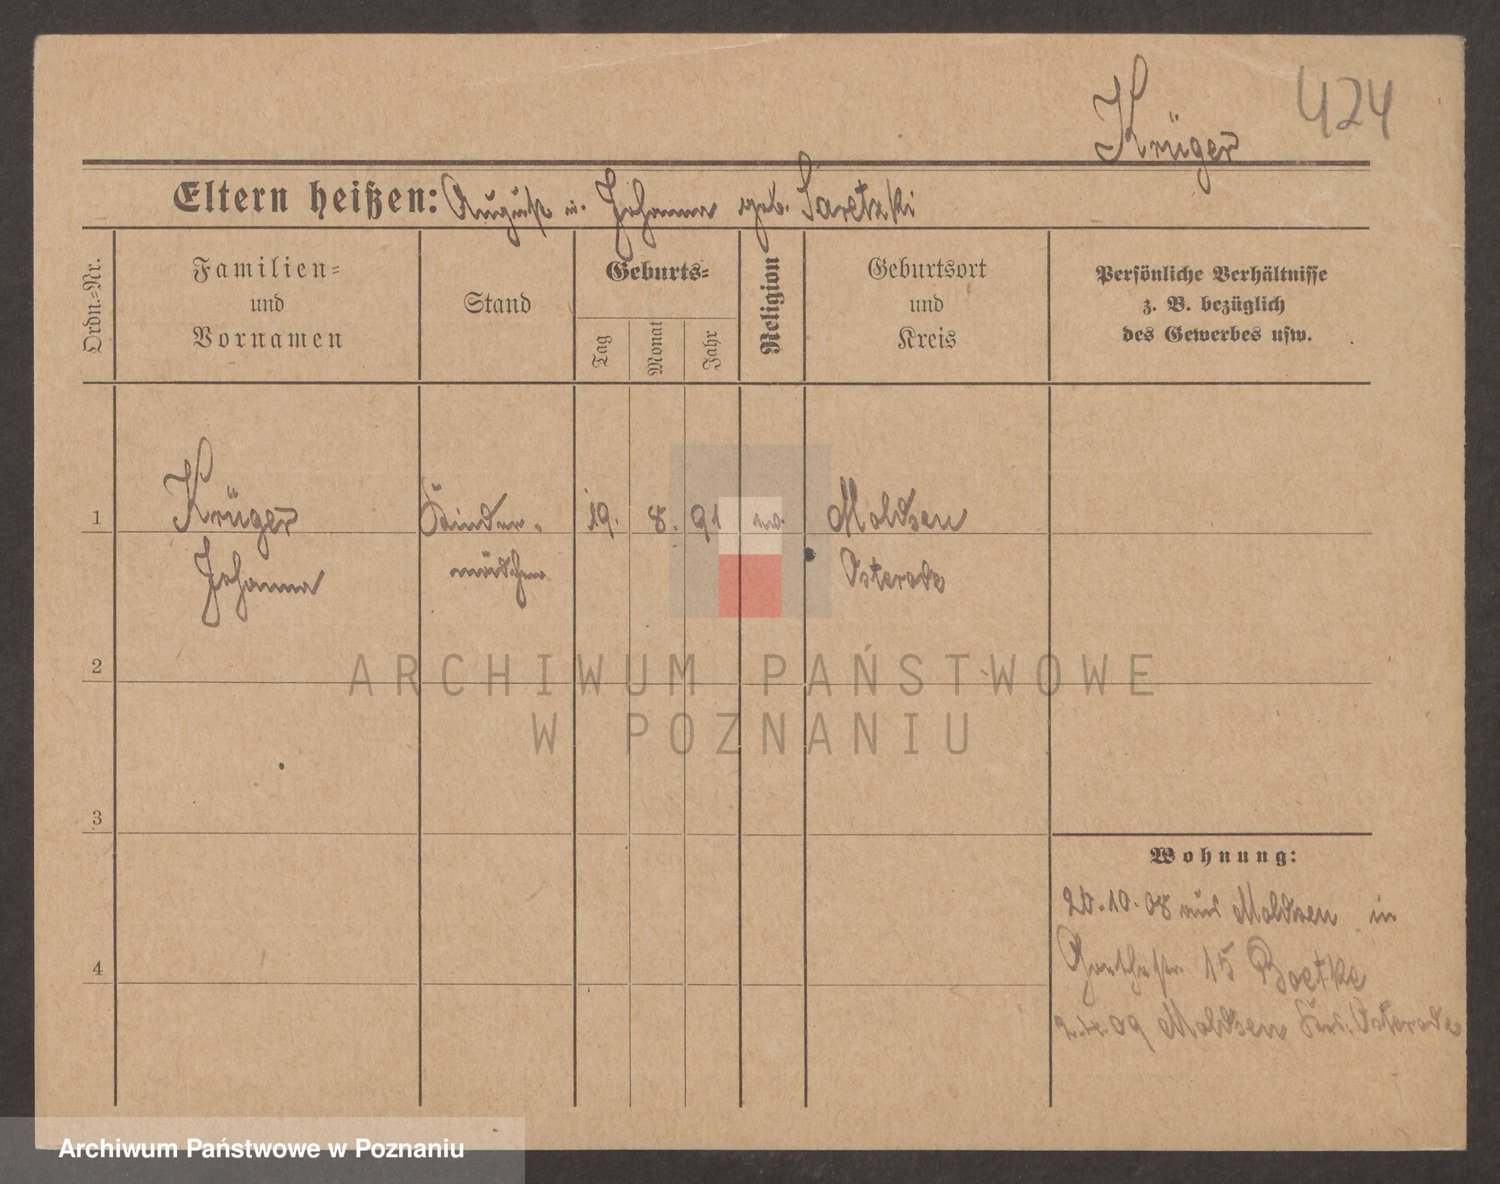 Krüger 424
Eltern heißen: August u. Johanna geb. Saretzki
Ordn.-Nr.
Familien-
und
Vornamen
Stand
Geburts-
Tag
Monat
Jahr
Religion
Geburtsort
und
Kreis
Persönliche Verhältnisse
z. B. bezüglich
des Gewerbes usw.
1
Krüger Kinder- 19. 8. 91 Moldsen
Johanna mädchen Osterode
2
ARCHIWUM PAŃSTWOWE
W POZNANIU
3
Wohnung:
20.10.08 aus Moldsen in
Goethestr. 15 Boetke
2.4.09 Moldsen Krs. Osterode
4
Archiwum Państwowe w Poznaniu